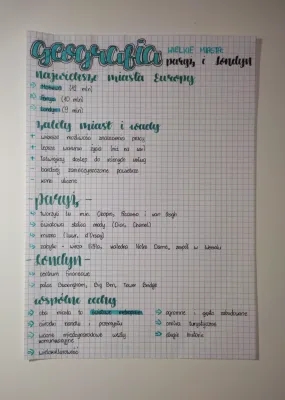 Geografia
WIELKIE MIASTA
paryż i londyn
największe miasta Europy
Moskwa (12 mln)
Paryż (10 mln)
Londyn (9 mln)
zalety miast i wady
+ większe możliwości znalezienia pracy
+ lepsze warunki życia (niż na wsi)
+ łatwiejszy dostęp do usług
- bardziej zanieczyszczone powietrze
- większe
paryż -
tworzyli tu m.in. Chopin, Picasso i van Gogh
światowa stolica mody (Dior, Chanel)
muzea (Luwr, d'Orsay)
zabytki - wieża Eiffla, katedra Notre Dame, zespół w Wersalu
londyn -
centrum finansowe
pałac Buckingham, Big Ben, Tower Bridge
wspólne cechy
oba miasta to światowe metropolie
ośrodki handlu i przemysłu
ważne międzynarodowe węzły
komunikacyjne
wielokulturowość
ogromne i gęsto zabudowane
centra turystyczne
długa historia